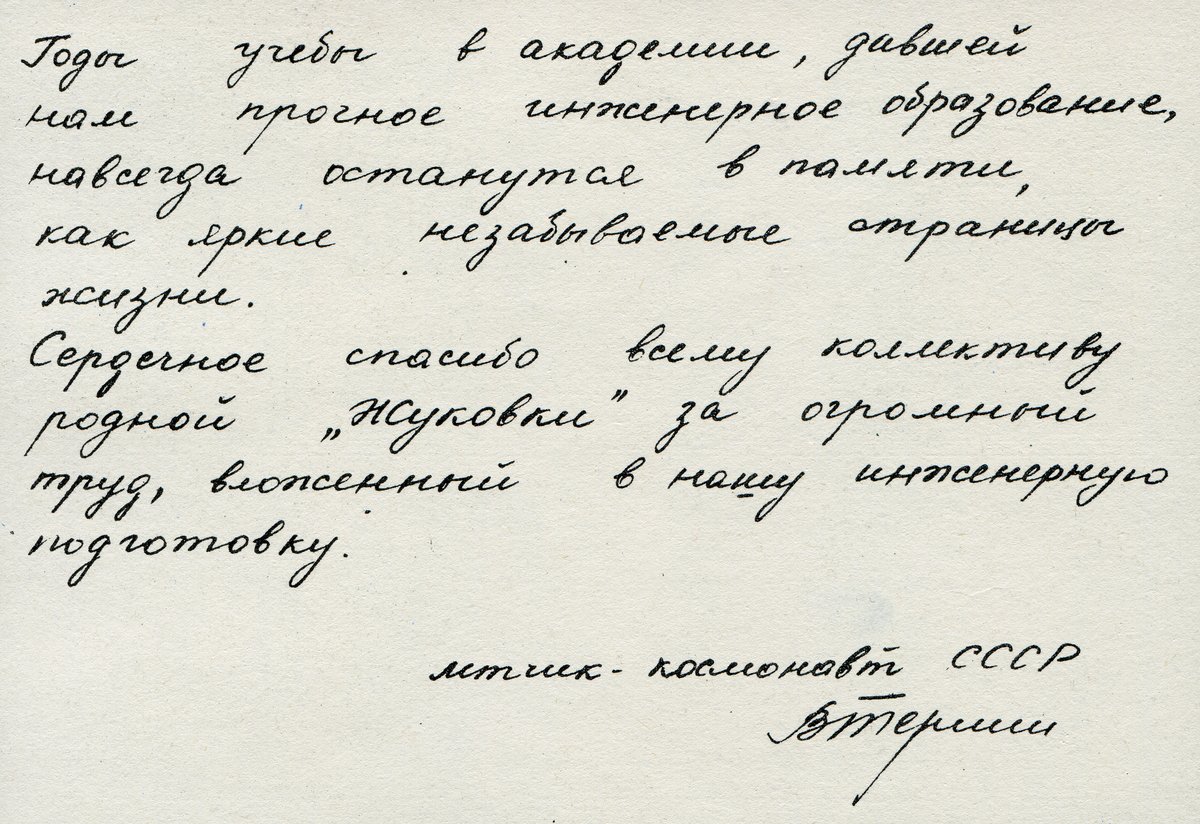 Годы учебы в академии, давшей
нам прочное инженерное образование,
навсегда останутся в памяти,
как яркие незабываемые страницы
жизни.
Сердечное спасибо всему коллективу
родной „Жуковки” за огромный
труд, вложенный в нашу инженерную
подготовку.
летчик-космонавт СССР